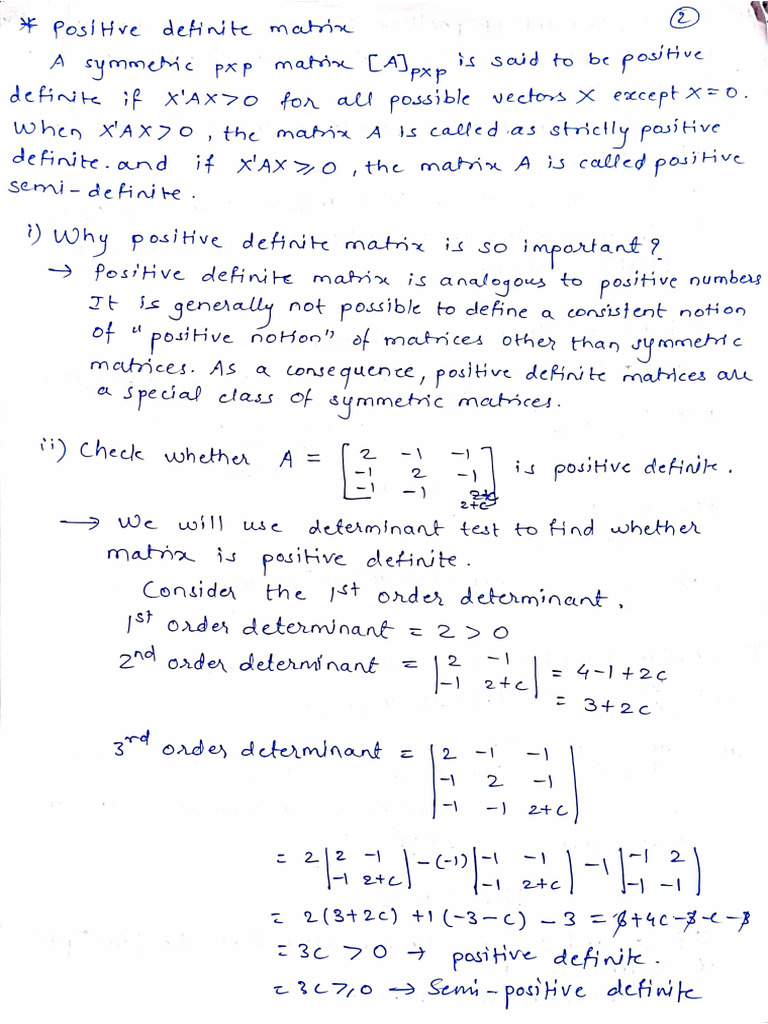 2
* Positive definite matrix
A symmetric pxp matrix [A]pxp is said to be positive
definite if X'AX>0 for all possible vectors X except X=0.
When X'AX>0, the matrix A is called as strictly positive
definite. and if X'AX ≥ 0, the matrix A is called positive
semi-definite.
i) Why positive definite matrix is so important?
→ Positive definite matrix is analogous to positive numbers
It is generally not possible to define a consistent notion
of "positive notion" of matrices other than symmetric
matrices. As a consequence, positive definite matrices are
a special class of symmetric matrices.
ii) Check whether A = [2 -1 -1
-1 2 -1
-1 -1 2+c] is positive definite.
2+c
→ We will use determinant test to find whether
matrix is positive definite.
Consider the 1st order determinant.
1st order determinant = 2 > 0
2nd order determinant = |2 -1
-1 2+c| = 4-1+2c
= 3+2c
3rd order determinant = |2 -1 -1
-1 2 -1
-1 -1 2+c|
= 2|2 -1
-1 2+c| -(-1)|-1 -1
-1 2+c| -1|-1 2
-1 -1|
= 2(3+2c) +1(-3-c) -3 = 6+4c-3-c-3
= 3c > 0 → positive definite.
= 3c ≥ 0 → Semi-positive definite